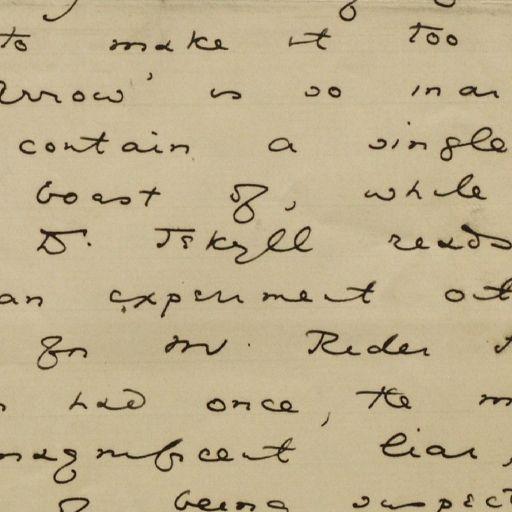 to make it too
arrow' is so inar
contain a single
boast of, while
Dr. Jekyll reads
an experiment out
for Mr. Rider H
had once, the m
magnificent liar,
being suspect